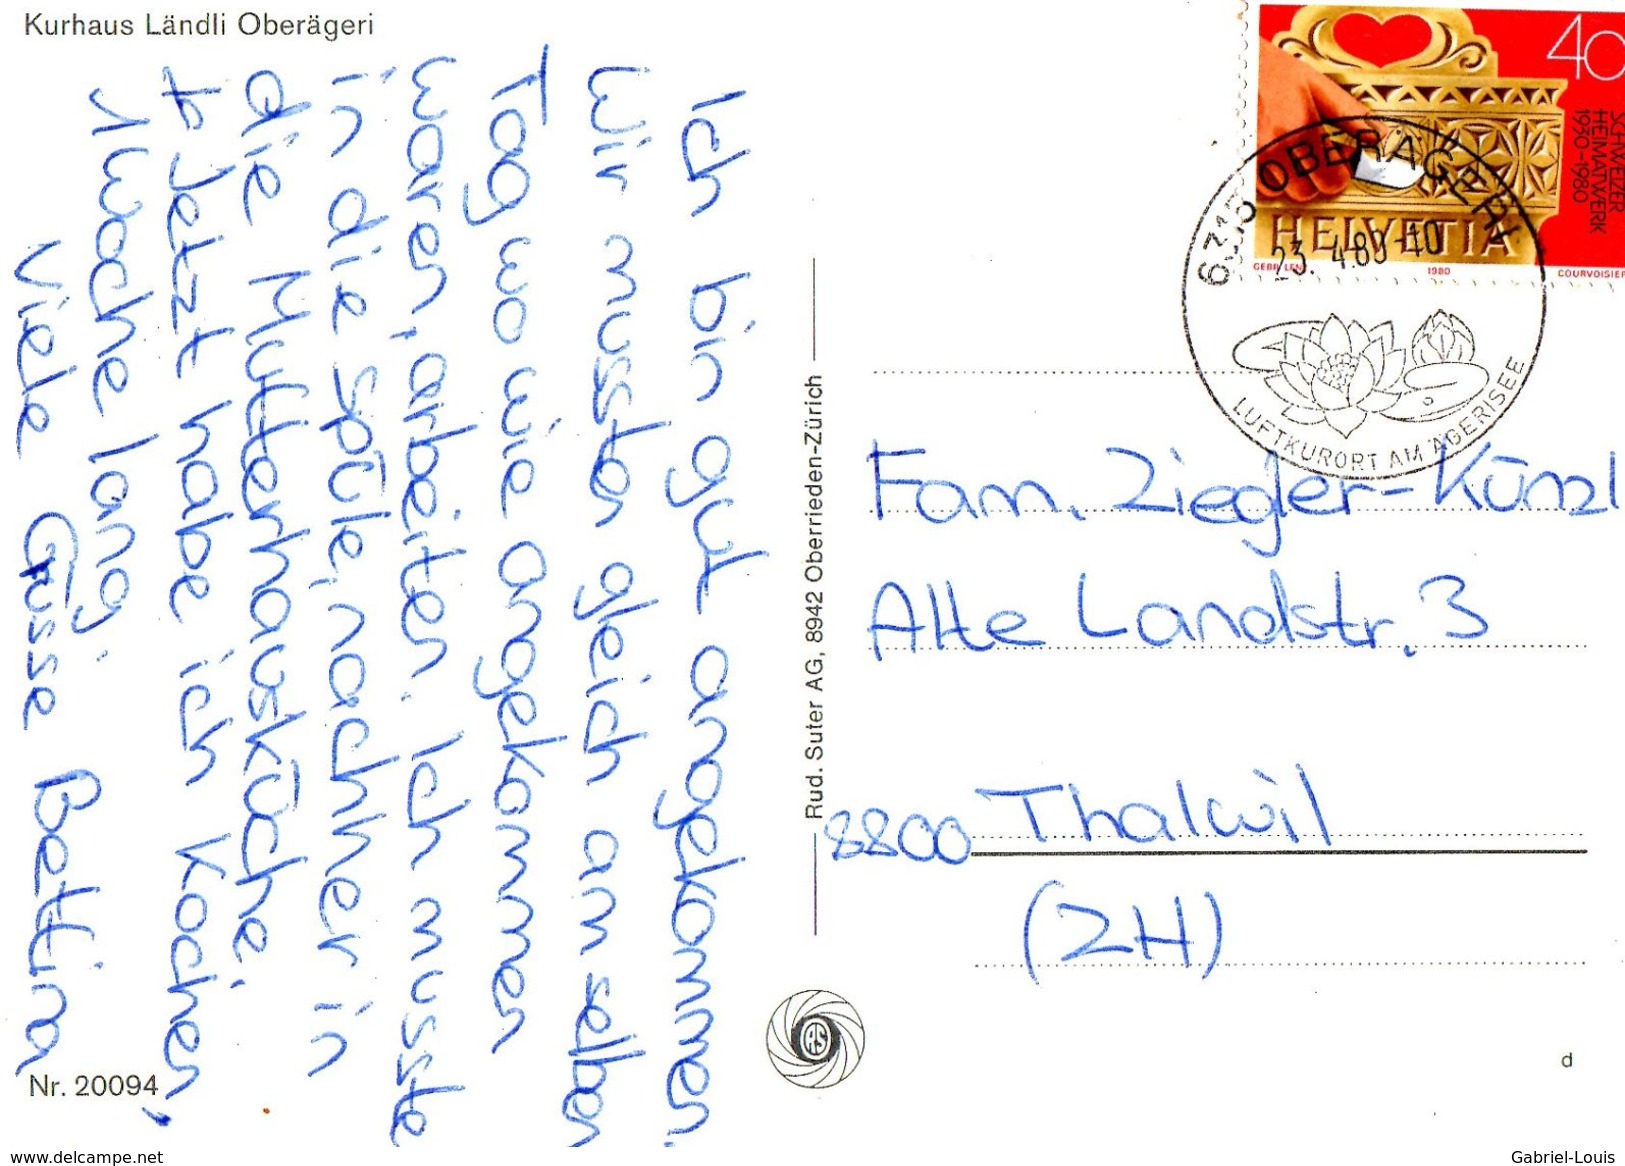 Kurhaus Ländli Oberägeri
Ich bin gut angekommen.
Wir mussten gleich am selben
Tag wo wie angekommen
waren, arbeiten. Ich musste
in die Spüle, nachher in
die Mutterhausküche.
Jetzt habe ich Kochen,
1 Woche lang.
Viele Grüsse Bettina
Nr. 20094
Rud. Suter AG, 8942 Oberrieden-Zürich
RS
40
SCHWEIZER
HEIMATWERK
1930-1980
HELVETIA
1980
COURVOISIER
6315 OBERÄGERI
23.4.80-10
LUFTKURORT AM ÄGERISEE
Fam. Ziegler-Künzl
Alte Landstr. 3
8800 Thalwil
(ZH)
d
delcampe.net
Gabriel-Louis